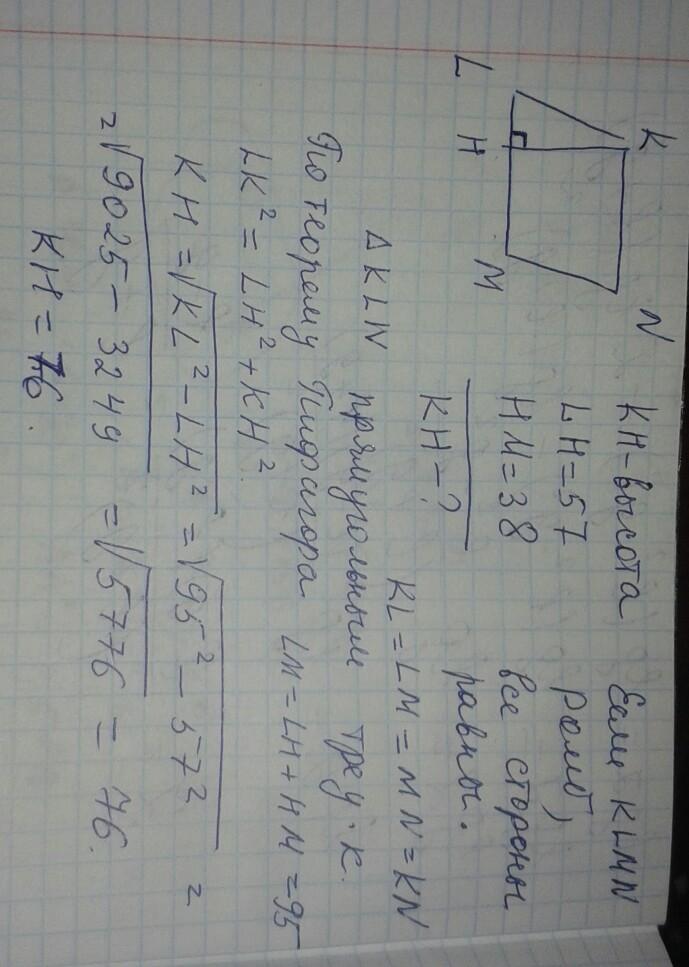 L H M
K N
KH-высота
LH=57
HM=38
KH-?
Если KLMN
ромб,
все стороны
равны.
KL=LM=MN=KN
Δ KLN прямоугольным треу.к.
По теорему Пифагора LM=LH+HM=95
LK²=LH²+KH².
KH=√KL²-LH²=√95²-57² =
=√9025-3249 =√5776 = 76.
KH=76.